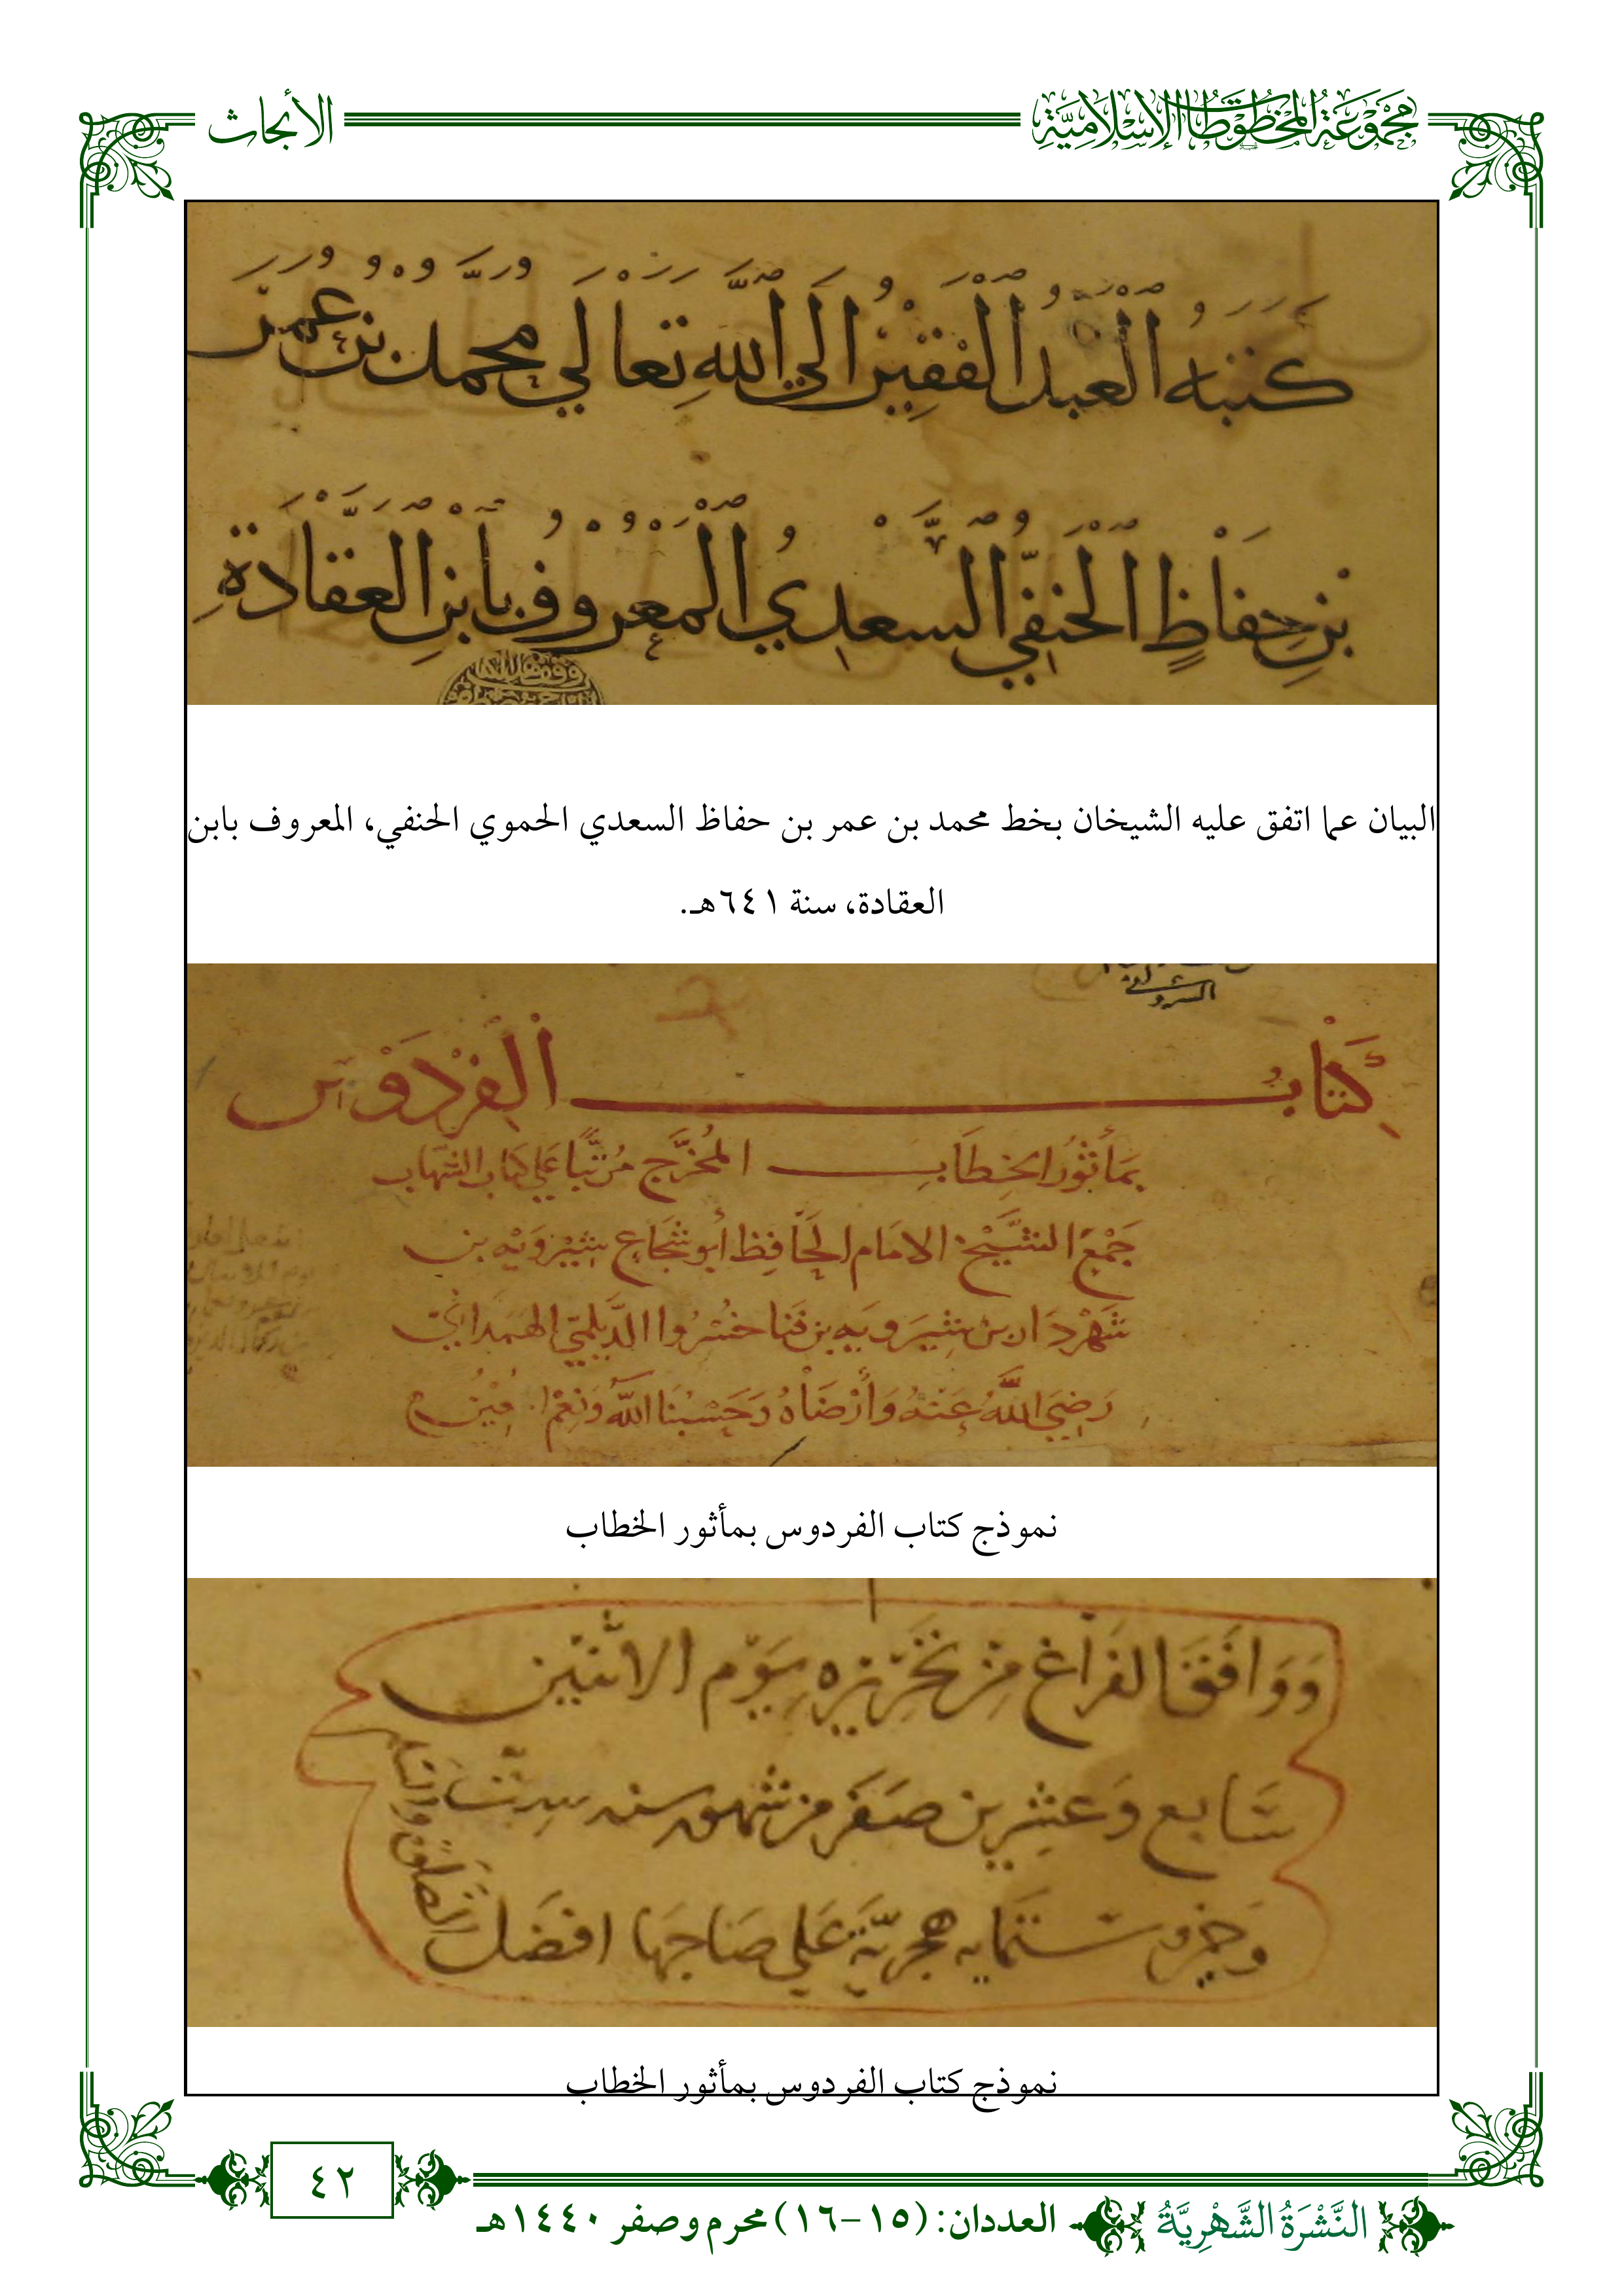 مجموعة المخطوطات الإسلامية
الأبحاث
كَتَبَهُ الْعَبْدُ الْفَقِيرُ إِلَى اللَّهِ تَعَالَي مُحَمَّدُ بْنُ عُمَرَ
بْنِ حِفَاظٍ الْحَنَفِيُّ السَّعْدِيُ الْمَعْرُوفُ بِابْنِ الْعَقَّادَةِ
البيان عما اتفق عليه الشيخان بخط محمد بن عمر بن حفاظ السعدي الحموي الحنفي، المعروف بابن
العقادة، سنة ٦٤١هـ.
كِتَابُ الْفِرْدَوْسِ
بمَأثُورُ الخِطَابِ المُخَرَّج مُرَتَّبًا عَلي كتاب الشهَاب
جَمْعُ الشَّيْخ الامَام الحَافِظ أبو شُجَاعِ شِيْرُوَيْه بن
شَهْرَدَار بن شِيرَويَه بن فَنا خسْرُوا الدَّيلَميّ الهَمَدانيّ
رَضِيَ اللَّهُ عَنْهُ وَأَرْضَاهُ وَحَسْبُنَا اللَّهُ وَنِعْمَ
نموذج كتاب الفردوس بمأثور الخطاب
وَوَافَقَ الفَرَاغ مِن تَحْرِيْرِه يَوْم الاثنَين
سَابع وَعشرين صَفَر من شهور سنه ستّ
وخمسين وستمايه هجريّة عَلي صَاحِبهَا افضَل
الصلوة والسلم
نموذج كتاب الفردوس بمأثور الخطاب
٤٢
النَّشْرَةُ الشَّهْرِيَّةُ
العددان: (١٥-١٦) محرم وصفر ١٤٤٠هـ